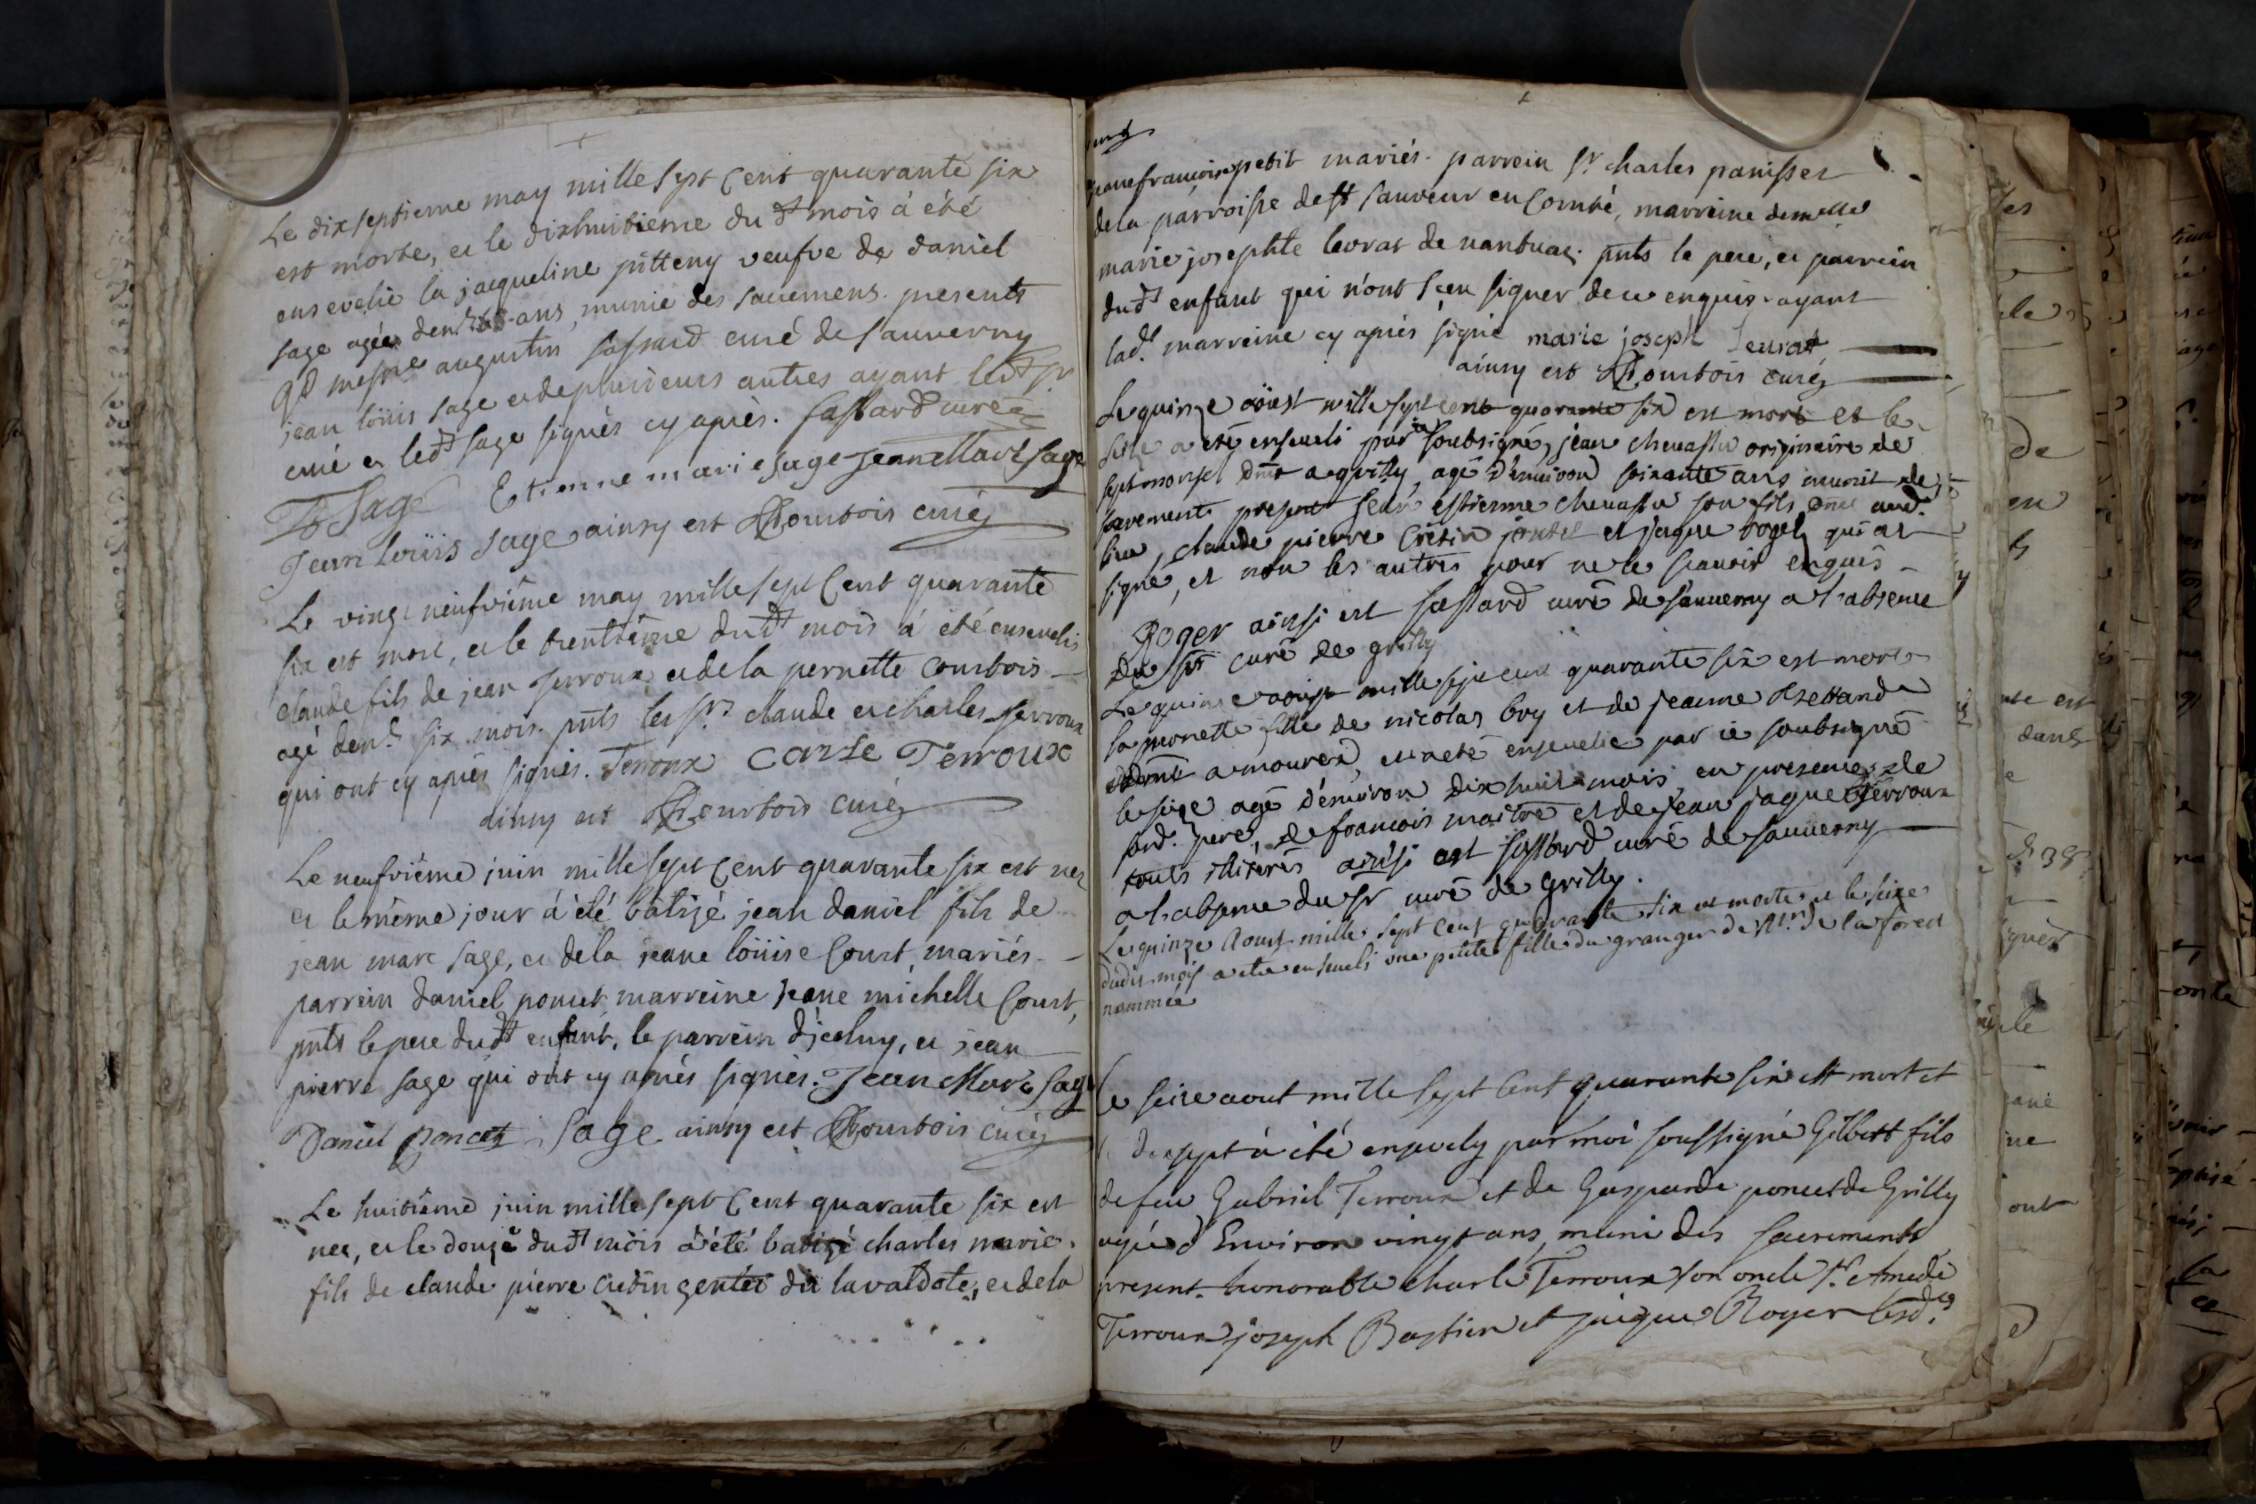 Le dixseptieme may mille sept Cent quarante six
est morte, et le dixhuitieme du dt mois à été
ensevelie la jacqueline pitteny veufve de daniel
sage agée denv. ans, munie des sacremens. presents
messre augustin sassard curé de sauverny
jean loüis sage et de plusieurs autres ayant ledt sr
curé et ledt sage signés cy aprés. sassard curé
Sage Etienne marie sage Jean Marc sage
Jean Louïs Sage ainsy est Courtois curé
Le vingt neufviême may mille sept Cent quarante
six est mort, et le trentiême dudt mois à été enseveli
claude fils de jean Terroux et de la pernette Courtois
agé denv. six mois. pnts les srs claude et charles Terroux
qui ont cy aprés signés. Terroux CARLE Terroux
ainsy est Courtois curé
Le neufviême juin mille sept Cent quarante six est nez
et le même jour à été bâtizé jean daniel fils de
jean marc sage, et de la jeane loüise Court, mariés
parrein daniel poncet, marreine jeane michelle Court,
pnts le pere dudt enfant, le parrein d'jceluy, et jean
pierre sage qui ont cy aprés signés. Jean Marc Sage
Daniel Poncet Sage ainsy est Courtois curé
Le huitiême juin mille sept Cent quarante six est
nez, et le douzê dudt mois à été batizé charles marie
fils de claude pierre cretin gentet dit lavaldote, et de la
jeane françoise petit mariés. parrein sr charles panisset
de la parroisse de st sauveur en Comté, marreine demelle
marie josephte levrat de nantuac. pnts le pere, et parrein
dudt enfant qui n'ont sceu signer de ce enquis. ayant
lad. marreine cy aprés signé marie joseph Leurat
ainsy est Courtois curé
Le quinze aöust mille sept cent quarante six est mort et le
seise a été enseveli par soubsigné, jean chevassu originaire de
septmonsel dmt a grilly, agé d'environ soixante ans munit de
sacrements present jean estienne chevassu son fils dmt aud.
lieu, claude pierre Cretin jentet et jaque roger qui at
signé, et non les autres pour ne le scavoir enquis
Roger ainsi est sassard curé de sauverny a l'absence
du sr curé de grilly
Le quinze aoust mille sept cent quarante six est morte
la monette fille de nicolas bry et de jeanne
dmt a mourex, et a eté ensevelie par ie soubsigné
le seize agé d'environ dix huit mois en presences de
sond. pere, de francois maitre et de jean jaque Terroux
touts illiterés ainsi est sassard curé de sauverny
a l'absence du sr curé de grilly.
Le quinze Aoust mille sept Cent quarante six est morte et le seize
dudit mois a eté enseveli une petite fille du granger de Mr. De la forest
nommée
Le seize aout mille sept Cent quarante six est mort et
le dixsept à été ensevely par moi soussigné Gilbert fils
de feu Gabriel Terroux et de Gasparde poncet de Grilly
agé d'Environ vingt ans, muni dés sacrements
present. honorable charle Terroux son oncle sr. Amedé
Terroux joseph Bastien et jaique Royer lesd.